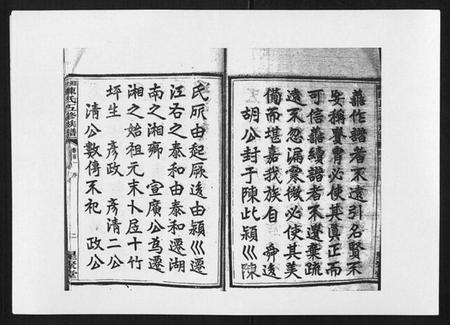 蓋作譜者不遠引名賢不
妄稱貴冑必使其真正而
可信蓋續譜者不選棄疏
遠不忽漏寒微必使其美
備而堪嘉我族自 舜後
胡公封于陳此潁川陳
氏所由起厥後由潁川遷
江右之泰和由泰和遷湖
南之湘鄉 宣廣公為遷
湘之始祖元末卜居十竹
坪生 彥政 彥清二公
清公數傳不祀 政公
陳氏五修族譜
卷首一 序
二
星聚堂